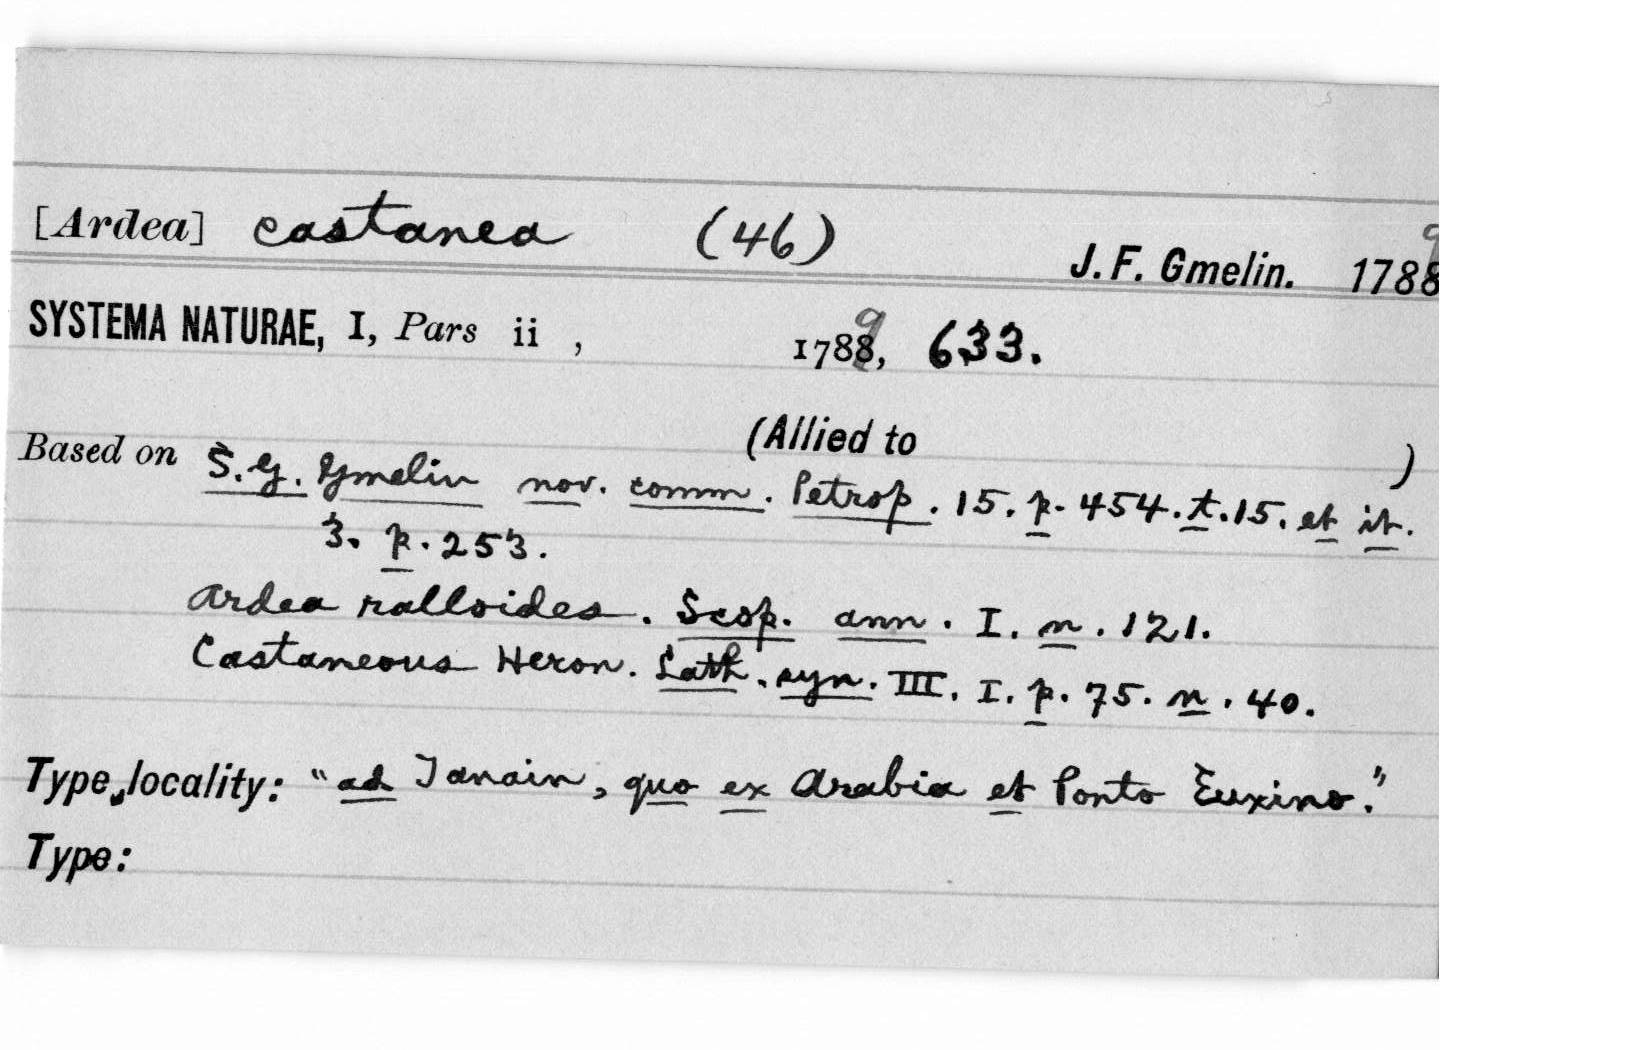 [Ardea] castanea (46) J. F. Gmelin. 1789
SYSTEMA NATURAE, I, Pars ii , 1789, 633.
(Allied to )
Based on S. G. Gmelin nov. comm. Petrop. 15. p. 454. t. 15. et it.
3. p. 253.
Ardea ralloides. Scop. ann. I. n. 121.
Castaneous Heron. Lath. syn. III. I. p. 75. n. 40.
Type locality: "ad Tanain, quo ex Arabia et Ponto Euxino."
Type: